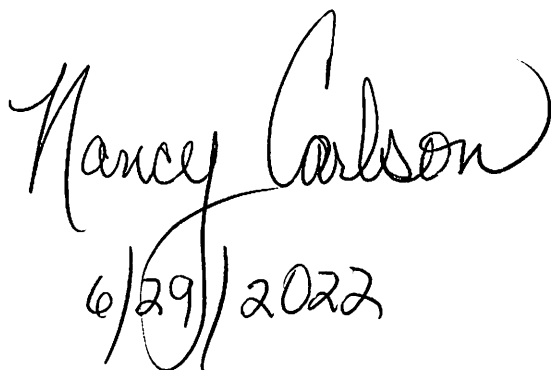 Nancy Carlson
6/29/2022